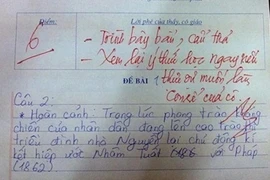 Điểm: Lời phê của thầy, cô giáo
6 - Trình bày bẩn, cẩu thả
- Xem lại ý thức học ngay nếu
ĐỀ BÀI thừa ơn muốn làm
Con rể của cô.
Câu 2:
* Hoàn cảnh: Trong lúc phong trào kháng
chiến của nhân dân đang lên cao trào thì
triều đình nhà Nguyễn lại chủ động kí
kết hiệp ước Nhâm Tuất với Pháp
(1862)